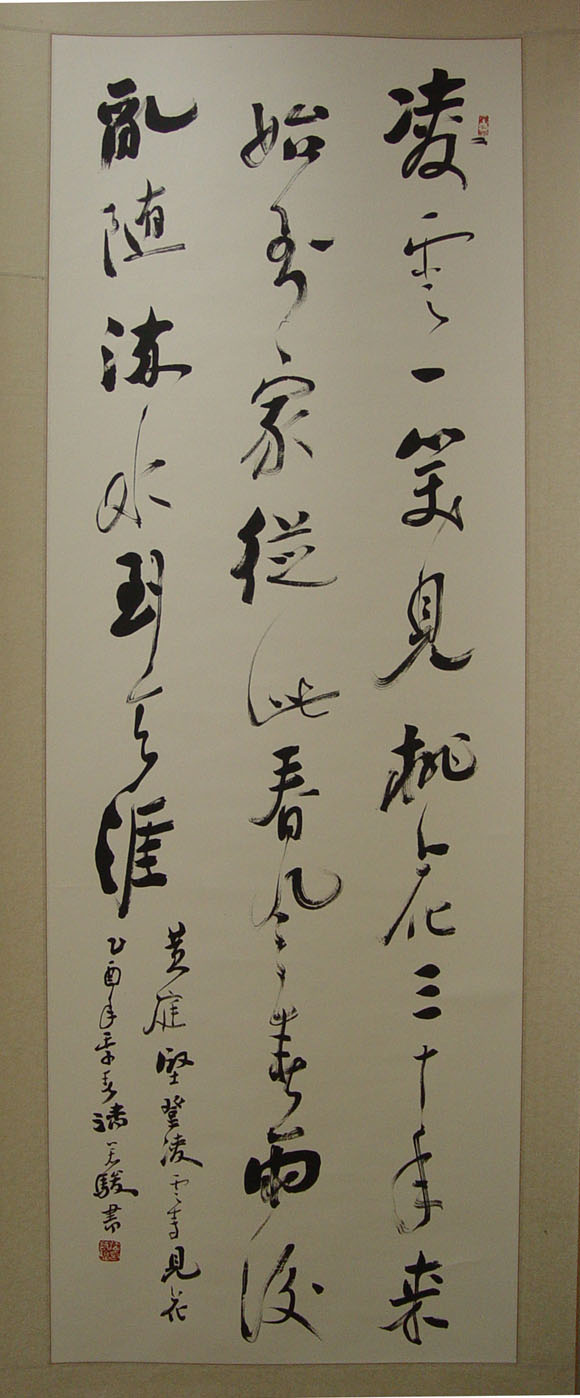 凌雲一笑見桃花三十年来
始到家從此春風春雨後
亂随流水到天涯
黄庭堅登凌雲寺見花
乙酉年春駿書